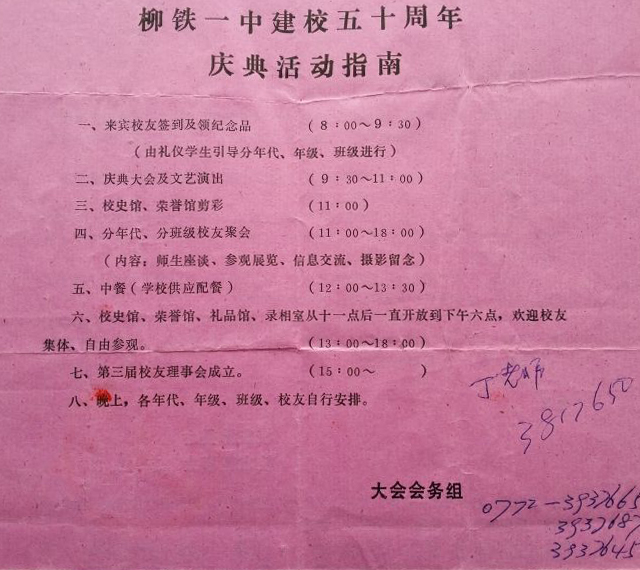 柳铁一中建校五十周年
庆典活动指南
一、来宾校友签到及领纪念品 (8:00～9:30)
(由礼仪学生引导分年代、年级、班级进行)
二、庆典大会及文艺演出 (9:30～11:00)
三、校史馆、荣誉馆剪彩 (11:00)
四、分年代、分班级校友聚会 (11:00～18:00)
(内容：师生座谈、参观展览、信息交流、摄影留念)
五、中餐(学校供应配餐) (12:00～13:30)
六、校史馆、荣誉馆、礼品馆、录相室从十一点后一直开放到下午六点，欢迎校友
集体、自由参观。 (13:00～18:00)
七、第三届校友理事会成立。 (15:00～ )
八、晚上，各年代、年级、班级、校友自行安排。
丁老师
3817650
大会会务组
0772-3937665
3937687
3937645